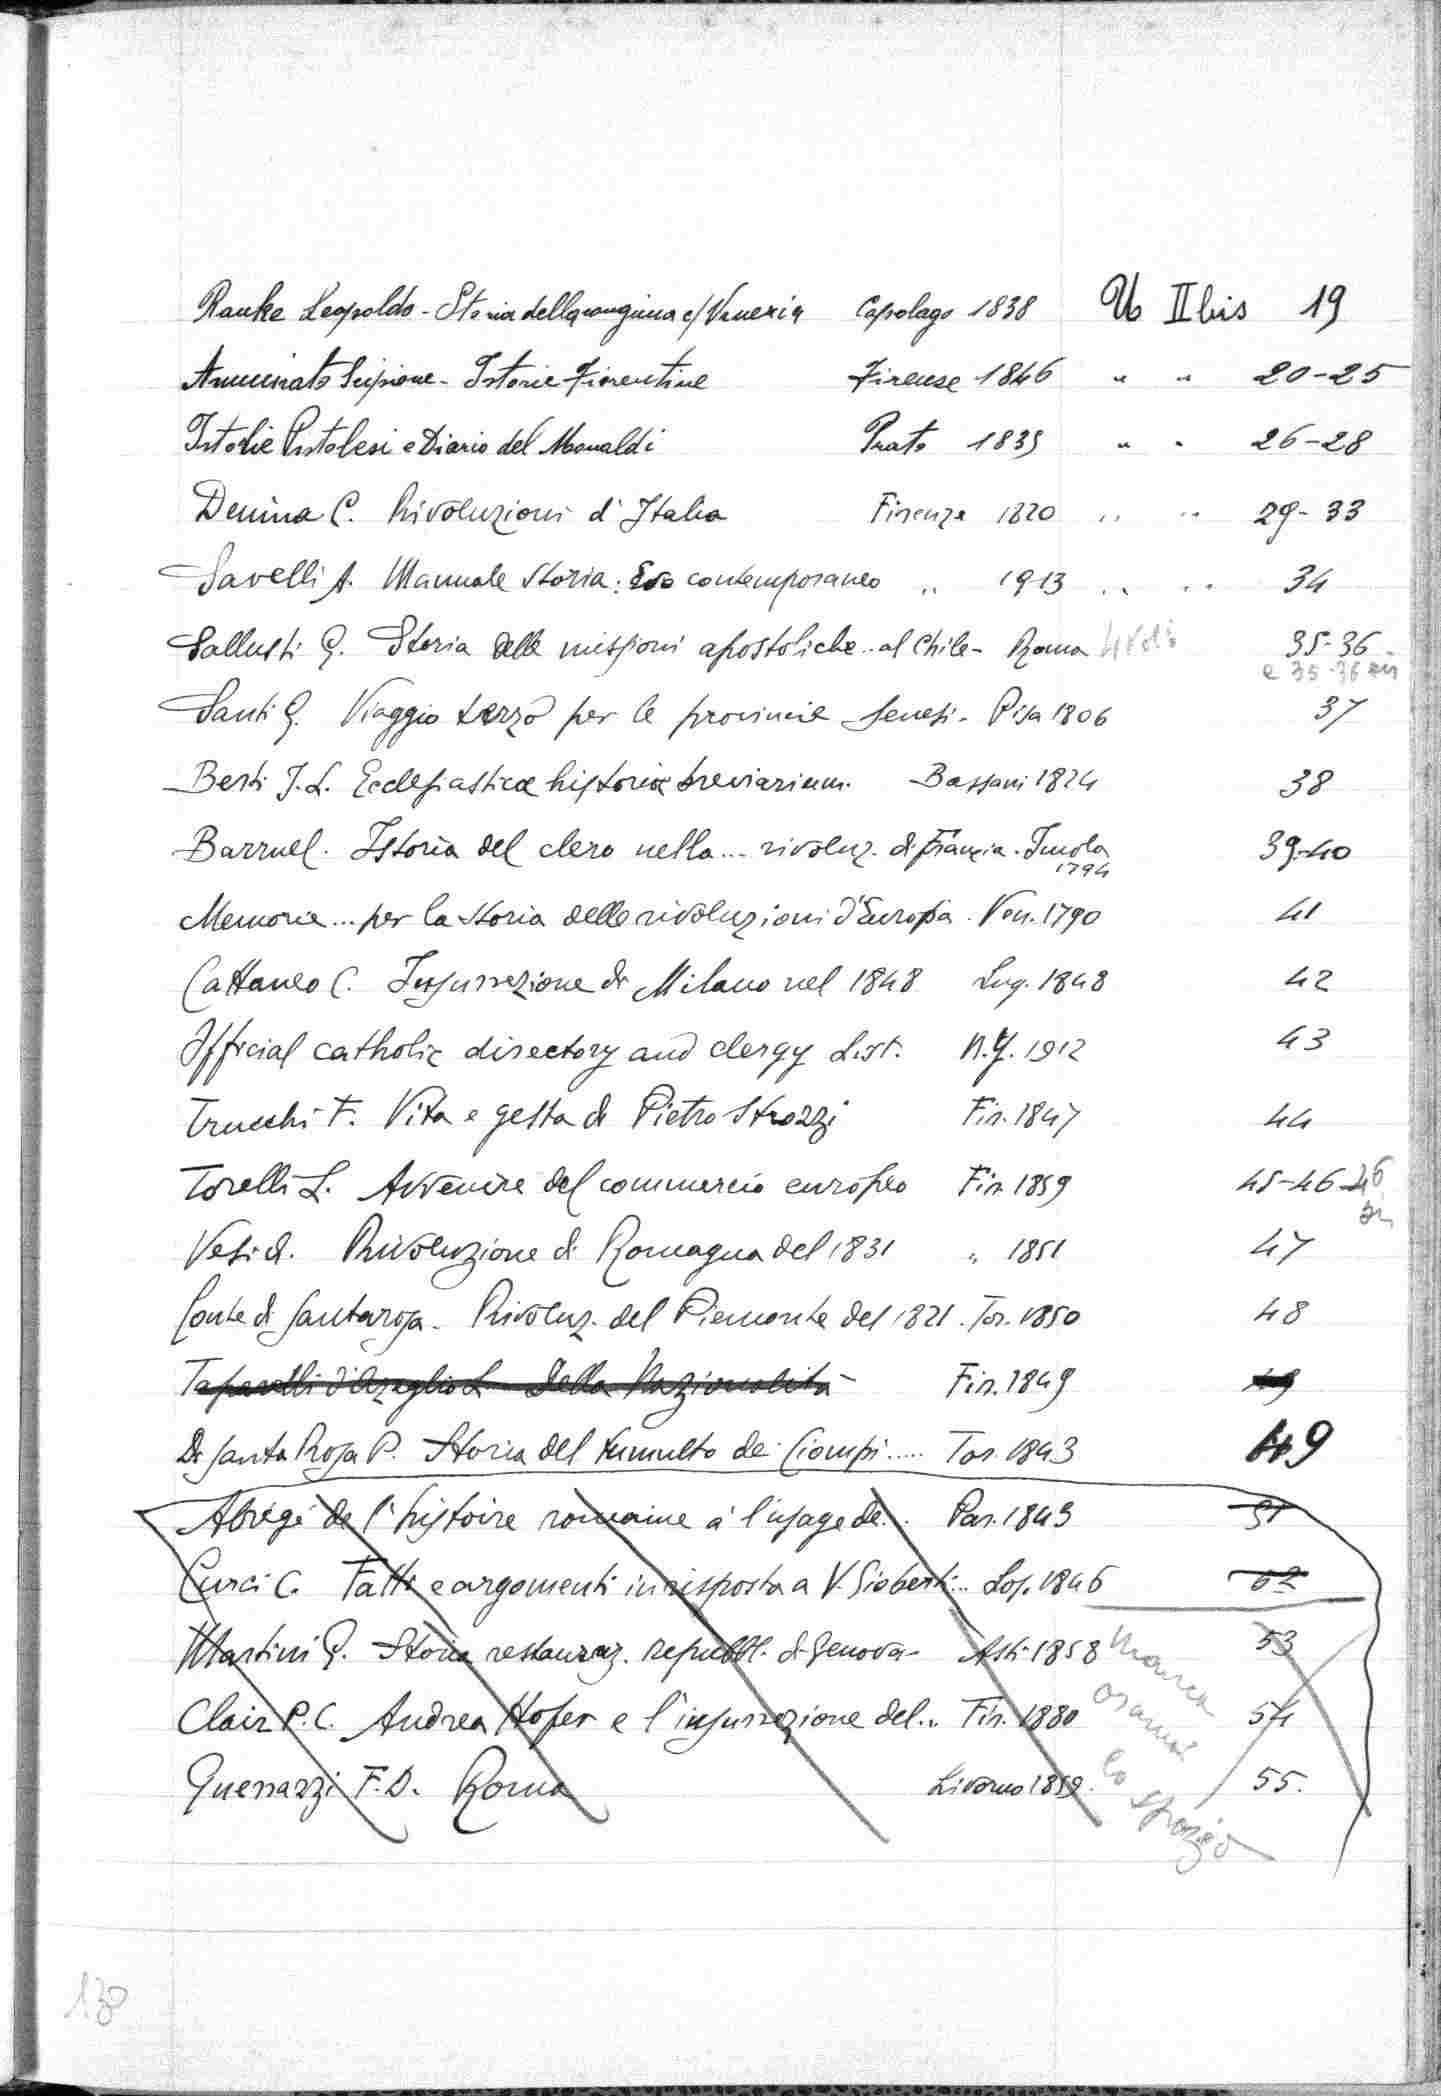 Ranke Leopoldo - Storia della congiura c/ Venezia Capolago 1838 U II bis 19
Ammirato Scipione - Istorie Fiorentine Firenze 1846 " " 20-25
Istorie Pistolesi e Diario del Monaldi Prato 1835 " " 26-28
Denina C. Rivoluzioni d'Italia Firenze 1820 " " 29-33
Savelli A. Manuale storia: Evo contemporaneo " 1913 " " 34
Sallusti G. Storia delle missioni apostoliche .. al Chile - Roma 4 voli 35-36
e 35-36
Santi G. Viaggio terzo per le provincie senesi - Pisa 1806 37
Berti J.L. Ecclesiasticæ historiæ breviarium. Bassani 1824 38
Barruel. Istoria del clero nella ... rivoluz. di Francia - Imola 39-40
1794
Memorie ... per la storia delle rivoluzioni d'Europa. Ven. 1790 41
Cattaneo C. Insurrezione di Milano nel 1848 Lug. 1848 42
Official catholic directory and clergy List. N.Y. 1912 43
Trucchi F. Vita e gesta di Pietro Strozzi Fir. 1847 44
Torelli L. Avvenire del commercio europeo Fir. 1859 45-46-46
Vesi A. Rivoluzione di Romagna del 1831 " 1851 47
Conte di Santarosa - Rivoluz. del Piemonte del 1821. Tor. 1850 48
Taparelli d'Azeglio L. Della Nazionalità Fir. 1849 49
Di Santa Rosa P. Storia del tumulto de' Ciompi ..... Tor. 1843 49
Abregé de l'histoire romaine à l'usage de.. Par. 1843 51
Curci C. Fatti e argomenti in risposta a V. Gioberti ... Los. 1846 52
Martini G. Storia restauraz. repubbl. di Genova - Asti 1858 53
Clair P.C. Andrea Hofer e l'insurrezione del .. Fir. 1880 54
Guerrazzi F.D. Roma Livorno 1859. 55.
manca
oramai
lo spazio
130